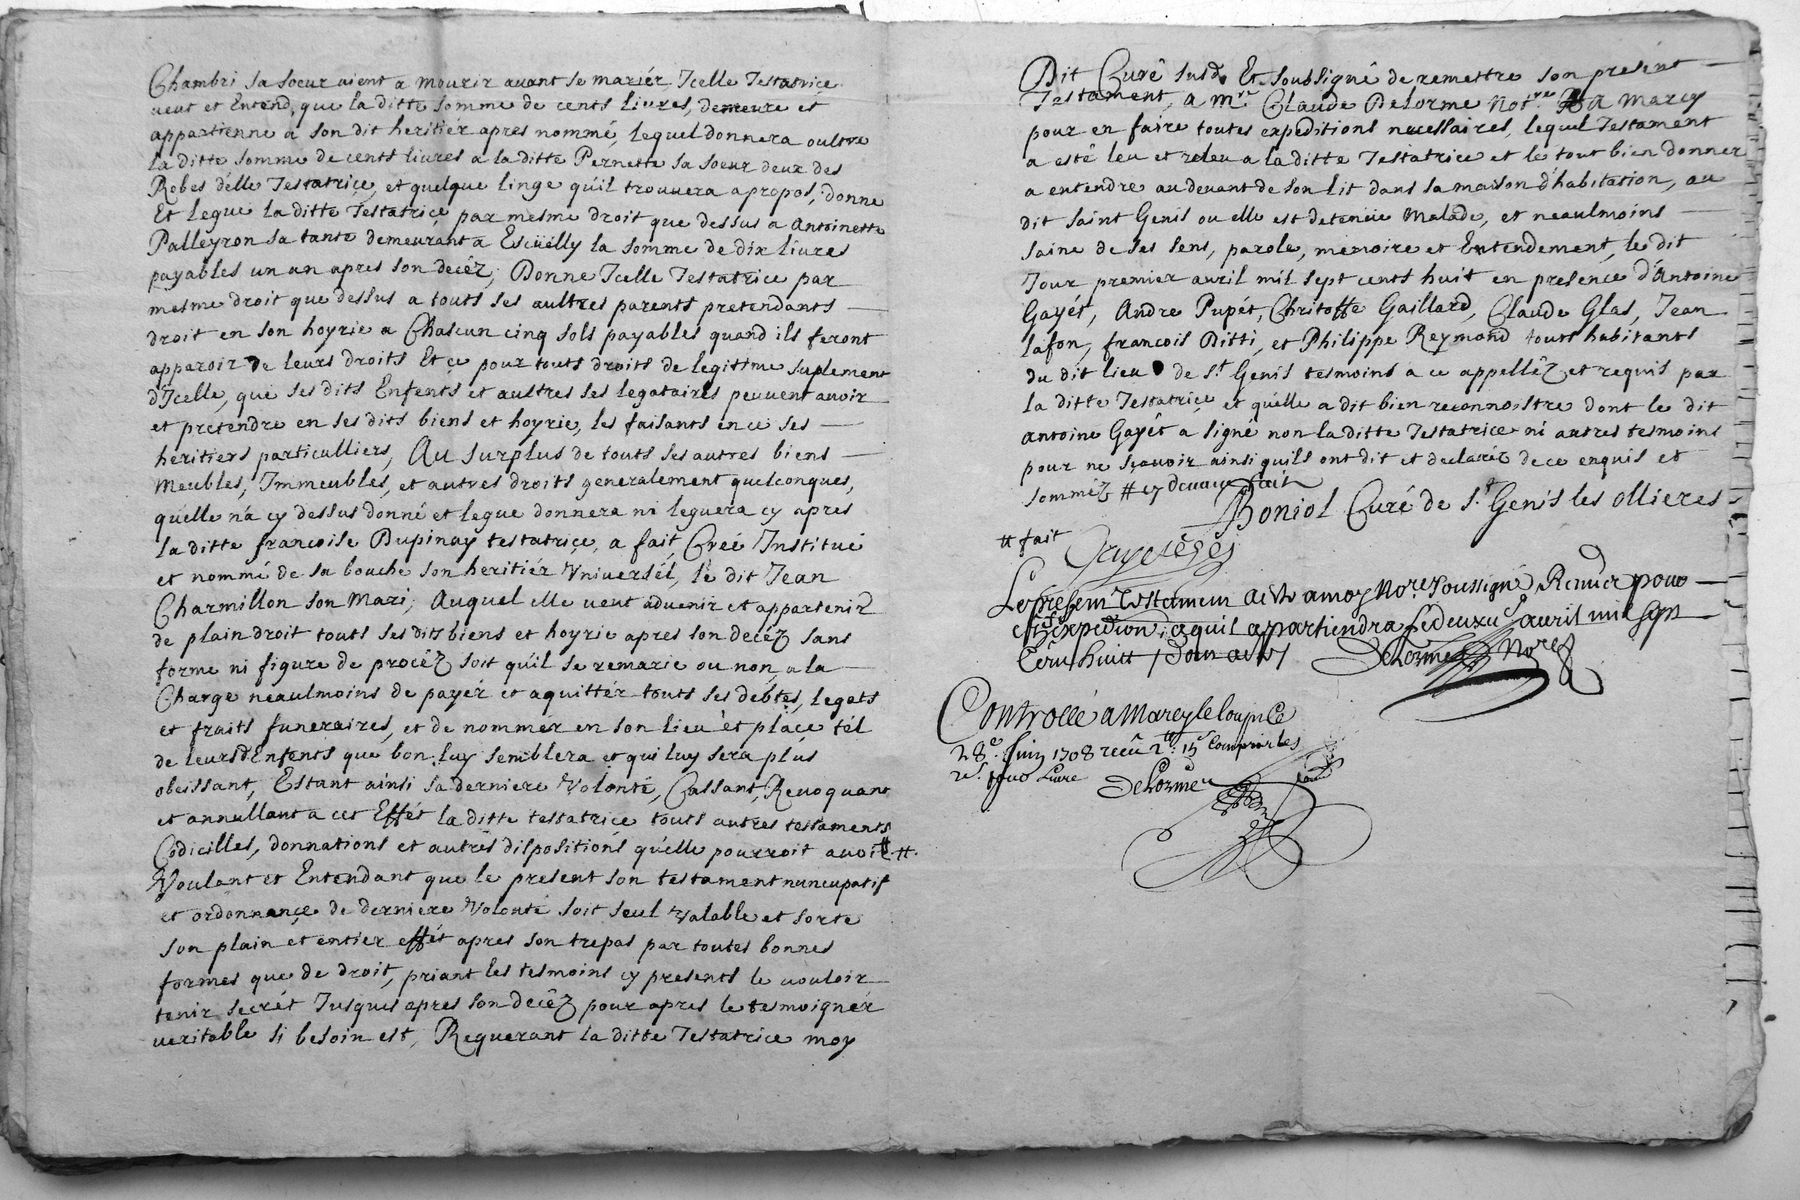 Chambri sa soeur aient a mourir avant se mariér Icelle Testatrice
veut et Entend, que la ditte somme de cents livres, demeure et
appartienne a son dit heritiér apres nommé, lequel donnera oultre
la ditte somme de cents livres a la ditte Pernette sa soeur deux des
Robes d'elle Testatrice, et quelque linge qu'il trouvera apropos, donne
Et legue la ditte Testatrice par mesme droit que dessus a Antoinette
Palleyron sa tante demeurant a Escüelly la somme de dix livres
payables un an apres son decéz, Donne Icelle Testatrice par
mesme droit que dessus a touts ses aultres parents pretendants
droit en son hoyrie a Chascun cinq sols payables quand ils feront
apparoir de leurs droits Et ce pour touts droits de legitime suplement
d'Icelle, que ses dits Enfents et aultres ses legataires peuvent avoir
et pretendre en ses dits biens et hoyrie, les faisants en ce ses
heritiers particulliers, Au surplus de touts ses autres biens
Meubles, Immeubles, et autres droits generalement quelconques,
qu'elle n'a cy dessus donné et legue donnera ni leguera cy apres
la ditte francoise Dupinay testatrice, a fait, Creé Institué
et nommé de sa bouche son heritiér Vniversél, le dit Jean
Charmillon son Mari, Auquel elle veut advenir et appartenir
de plain droit touts ses dits biens et hoyrie apres son decéz sans
forme ni figure de procéz soit qu'il se remarie ou non, a la
Charge neaulmoins de payér et aquittér touts ses debtes, legats
et fraits funeraires, et de nommér en son lieu et place tél
de leurs Enfents que bon luy semblera et qui luy sera plus
obeissant, Estant ainsi sa derniere Volonté, Cassant, Revoquant
et annullant a cet Effét la ditte testatrice touts autres testaments
Codicilles, donnations et autres dispositions qu'elle pourroit avoir #.
Voulant et Entendant que le present son testament nuncupatif
et ordonnance de derniere Volonte soit seul valable et sorte
son plain et entier effét apres son trepas par toutes bonnes
formes que de droit, priant les tesmoins cy presents le vouloir
tenir secrét Jusques apres son decéz pour apres le tesmoignér
veritable si besoin est, Requerant la ditte Testatrice moy
Dit Curé susd. Et soubsigné de remettre son present
Testament, a mre Claude Delorme Notre A Marcy
pour en faire toutes expeditions necessaires, lequel Testament
a esté leu et releu a la ditte Testatrice et le tout bien donner
a entendre au devant de son lit dans sa maison d'habitation, au
dit saint Genis ou elle est detenüe Malade, et neaulmoins
saine de ses sens, parole, memoire et Entendement, le dit
Jour premier avril mil sept cents huit en presence d'Antoine
Gayét, Andre Pupét, Christoffe Gaillard, Claude Glas, Jean
lafon, francois Ditti, et Philippe Reymond touts habitants
du dit lieu de St Genis tesmoins a ce appelléz et requis par
la ditte Testatrice et qu'elle a dit bien reconnoistre dont le dit
Antoine Gayét a signé non la ditte Testatrice ni autres tesmoins
pour ne sçavoir ainsi qu'ils ont dit et declaréz de ce enquis et
sommèz #
Boniol Curé de St Genis les ollieres
# fait
Le present Testament a moy Nore soussigné Remis pour
expedier a quil appartiendra deuxe avril mil sept
Cens huict
Delorme Nore
Controllé a Marcy le loup ce
28e Juin 1708 receu
Delorme